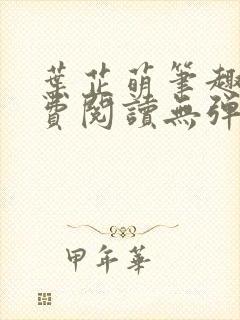 葉芷萌筆趣
費閱讀無彈
甲年華